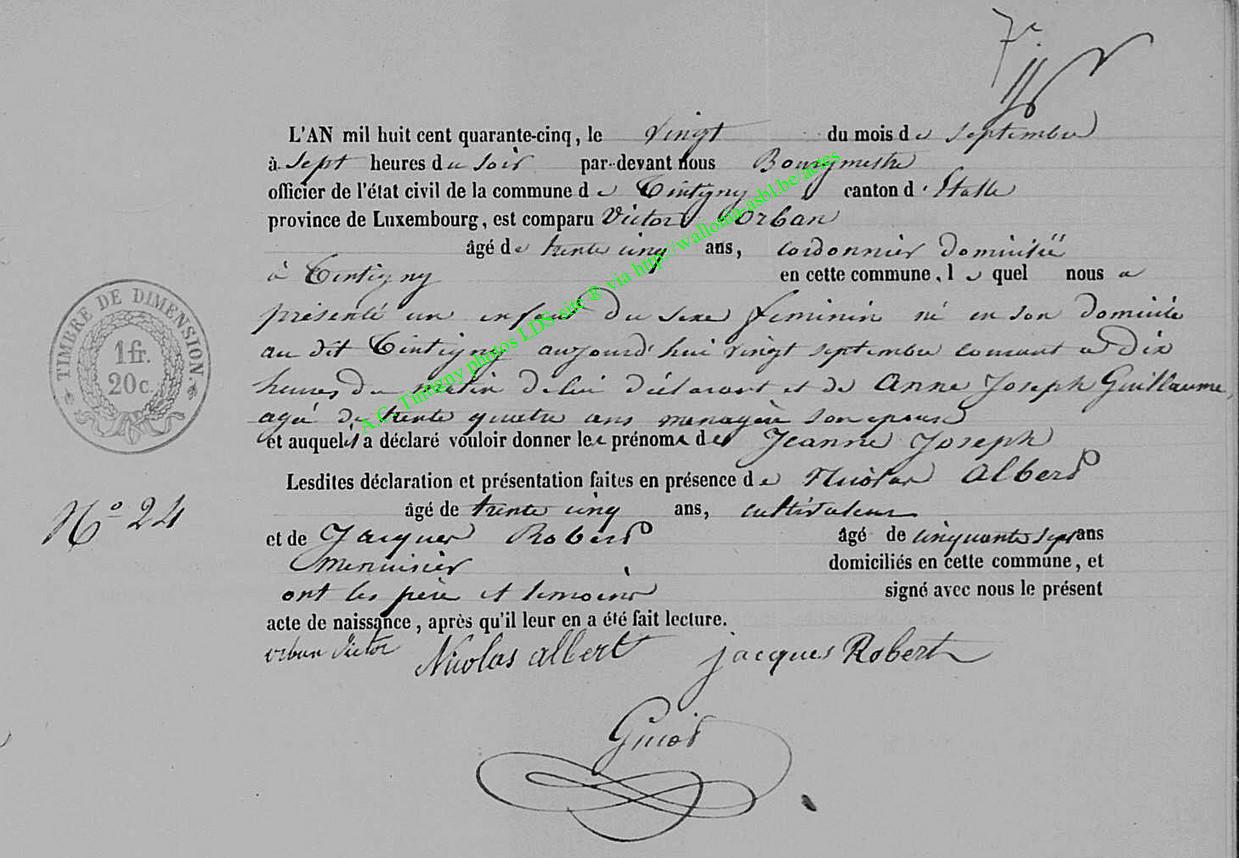 7e
L'AN mil huit cent quarante-cinq, le vingt du mois de septembre
à sept heures du soir par-devant nous Bourgmestre
officier de l'état civil de la commune de Tintigny canton d'Etalle
province de Luxembourg, est comparu Victor Orban
âgé de trente cinq ans, cordonnier domicilié
à Tintigny en cette commune, lequel nous a
présenté un enfant du sexe féminin né en son domicile
au dit Tintigny aujourd'hui vingt septembre courant à dix
heures du matin de lui déclarant et de Anne Joseph Guillaume,
agée de trente quatre ans menagère son epouse
et auquel il a déclaré vouloir donner les prénoms de Jeanne Joseph
Lesdites déclaration et présentation faites en présence de Nicolas Albert
âgé de trente cinq ans, cultivateur
et de Jacques Robert âgé de cinquante sept ans
menuisier domiciliés en cette commune, et
ont les père et temoins signé avec nous le présent
acte de naissance, après qu'il leur en a été fait lecture.
orban Victor Nicolas albert jacques Robert
Guiot
TIMBRE DE DIMENSION
1 fr.
20 c.
No 24
A.C. Tintigny photos LDS site ® via http://wallonia-asbl.be/actes